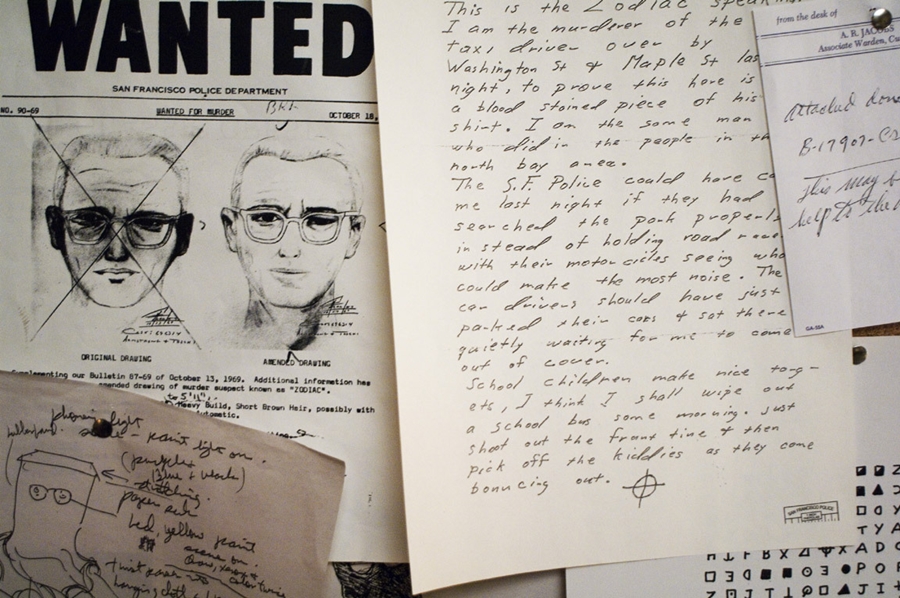 WANTED
SAN FRANCISCO POLICE DEPARTMENT
NO. 90-69 WANTED FOR MURDER OCTOBER 18,
ORIGINAL DRAWING AMENDED DRAWING
our Bulletin 87-69 of October 13, 1969. Additional information has
amended drawing of murder suspect known as "ZODIAC".
to 5'11",
Heavy Build, Short Brown Hair, possibly with
This is the Zodiac speaking
I am the murderer of the
taxi driver over by
Washington St & Maple St las
night, to prove this here is
a blood stained piece of his
shirt. I am the same man
who did in the people in th
north bay area.
The S.F. Police could have ca
me last night if they had
searched the park properl
in stead of holding road race
with their motorcicles seeing who
could make the most noise. The
car drivers should have just
parked their cars & sat there
quietly waiting for me to come
out of cover.
School children make nice targ-
ets, I think I shall wipe out
a school bus some morning. Just
shoot out the front tire & then
pick off the kiddies as they come
bouncing out.
SAN FRANCISCO POLICE
from the desk of
A. R. JACOBS
Associate Warden, Cu
Attached
B-17907-C
This may b
help to
light
paint light on.
(purple
blue &
stitching.
paper
red, yellow paint